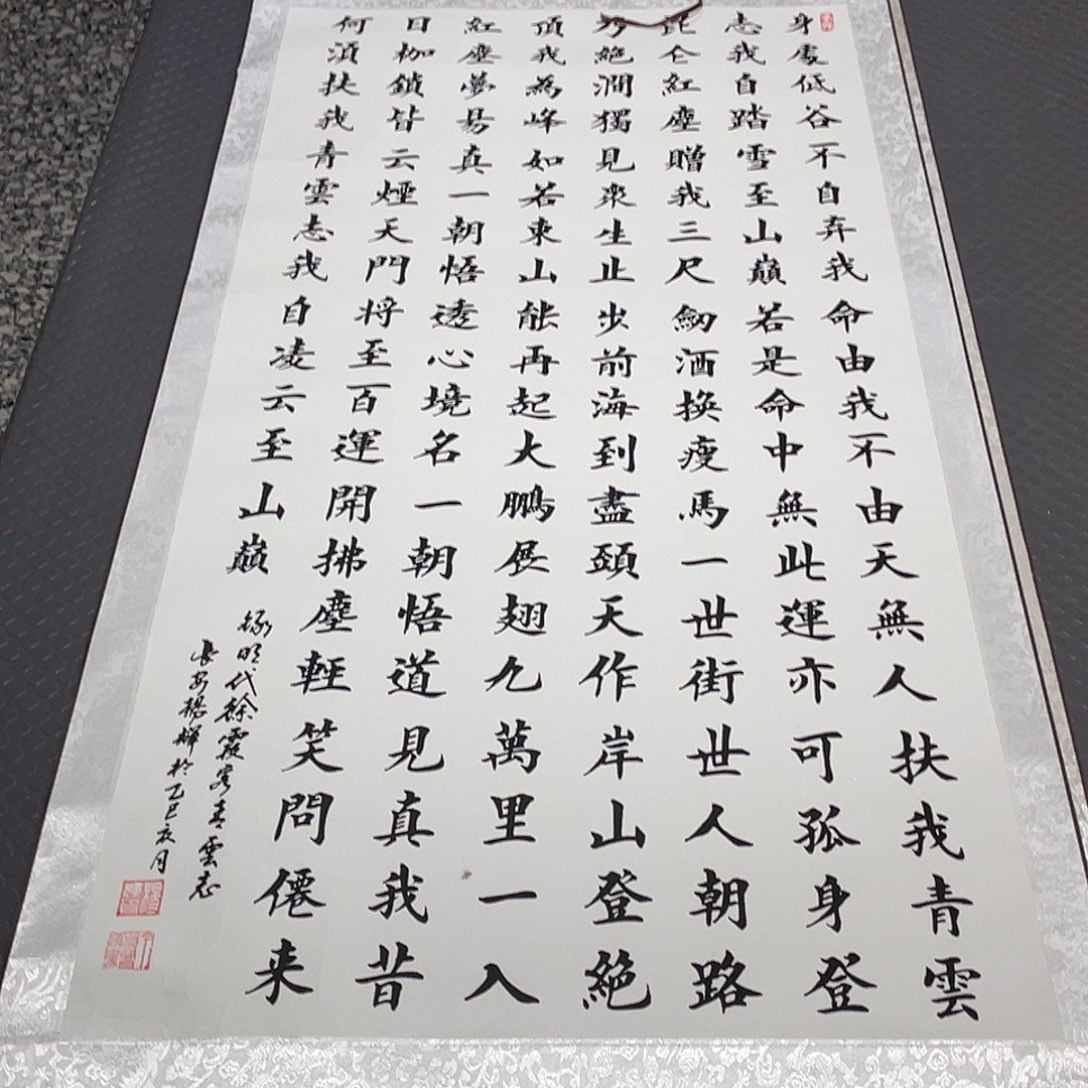 身處低谷不自弃我命由我不由天無人扶我青雲
志我自踏雪至山巔若是命中無此運亦可孤身登
昆仑紅塵贈我三尺劒酒換瘦馬一世街世人朝路
絕澗獨見衆生止步前海到盡頭天作岸山登絕
頂我為峰如若東山能再起大鵬展翅九萬里一入
紅塵夢易真一朝悟透心境名一朝悟道見真我昔
日枷鎖皆云煙天門将至百運開拂塵輕笑問僊来
何湏扶我青雲志我自凌云至山巔
錄明代餘霞客青雲志
長安楊輝於乙巳亥月